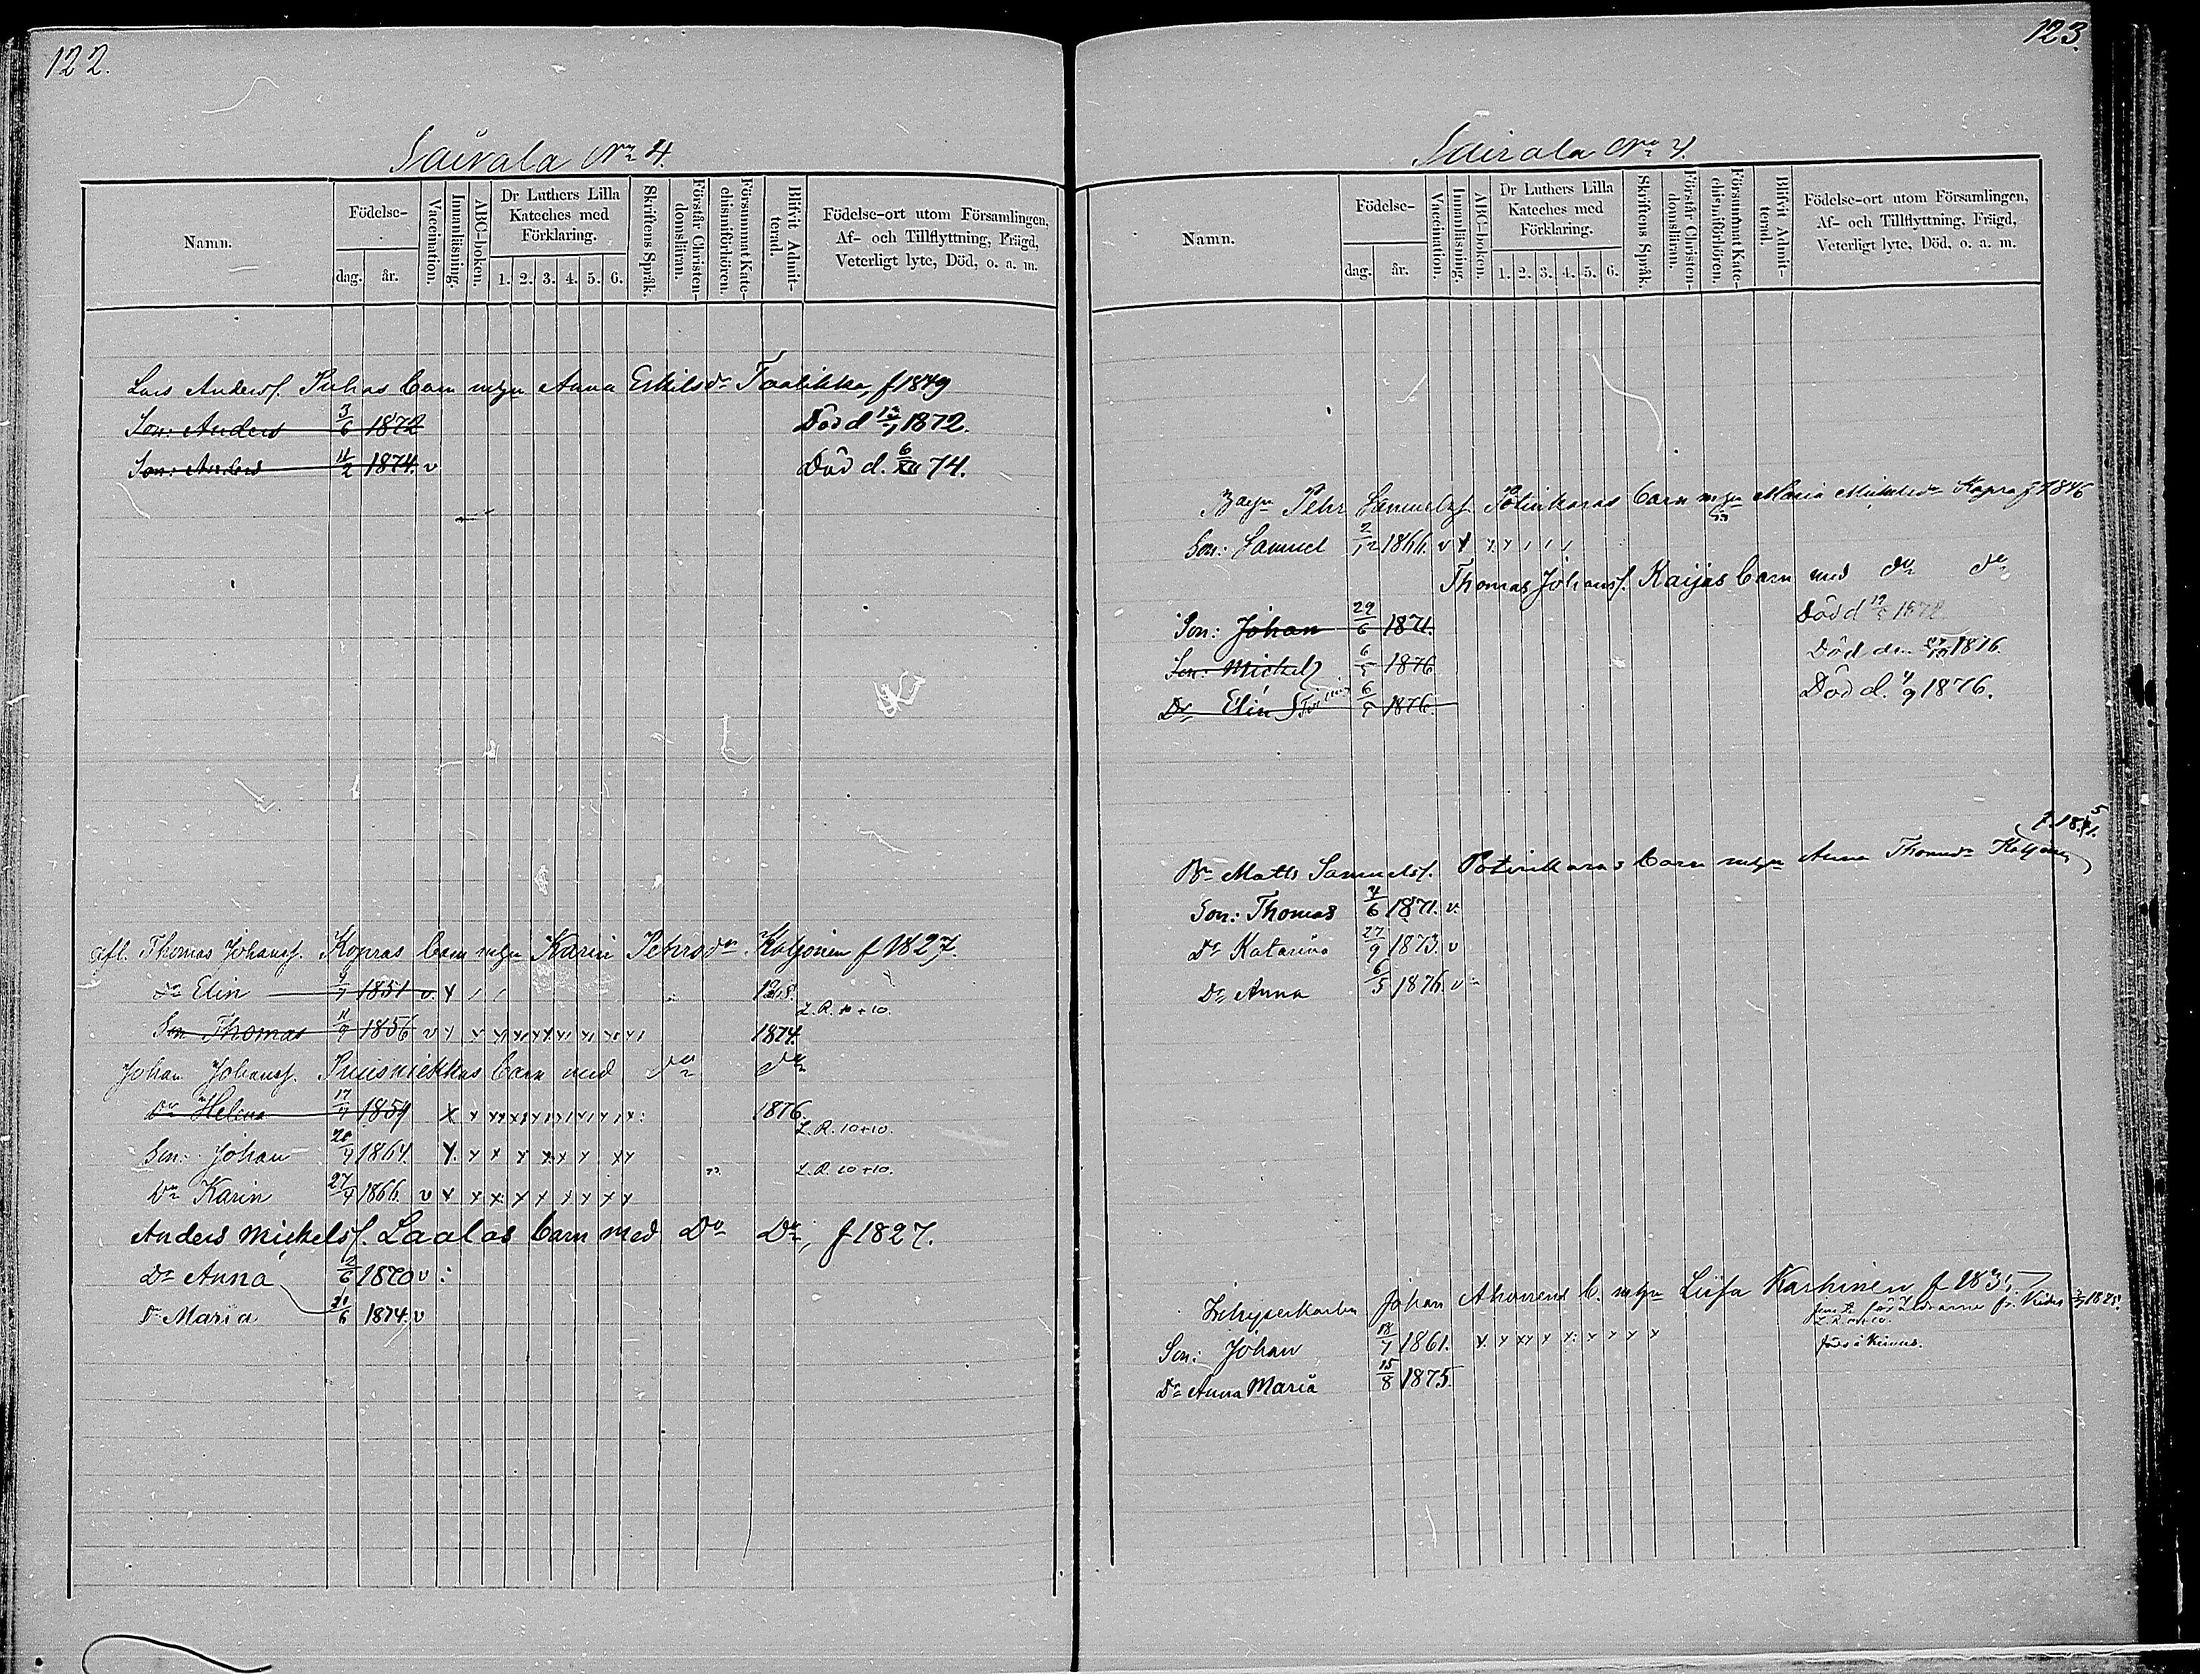 122.
Sairala No 4.
Namn.
Födelse-
dag.
år.
Vaccination.
Innanläsning.
ABC-boken.
Dr Luthers Lilla
Kateches med
Förklaring.
1. 2. 3. 4. 5. 6.
Skriftens Språk.
Förstår Christen-
domsläran.
Försummat Kate-
chismiförhören.
Blifvit Admit-
terad.
Födelse-ort utom Församlingen,
Af- och Tillflyttning, Frägd,
Veterligt lyte, Död, o. a. m.
Lars Andersf. Puhas barn m hn Anna Eskilsdr Taalikka, f 1849
Son: Anders 3/6 1872 Död 1872.
Son: Anders 11/2 1874. v Död d. 6/XII 74.
afl. Thomas Johansf. Kopras barn Karin Petersdr Katjonen f 1827.
Dr Elin 1851 v. x
L. R. 10 + 10.
Son Thomas 11/9 1856 v 1874.
Johan Johansf. Puusniekkas barn med Do Do
Dr Helena 17/7 1859 x x 1876.
L. R. 10+10.
Son: Johan 1864. x x x x x x x x x
L. R. 10+10.
Dr Karin 27/4 1866. v x x x x x x x x x
Anders Mickelsf. Laalas barn med Do Do, f 1827.
Dr Anna 12/6 1870 v :
Dr Maria 1874. v
123.
Sairala No 4.
Namn.
Födelse-
dag.
år.
Vaccination.
Innanläsning.
ABC-boken.
Dr Luthers Lilla
Kateches med
Förklaring.
1. 2. 3. 4. 5. 6.
Skriftens Språk.
Förstår Christen-
domsläran.
Försummat Kate-
chismiförhören.
Blifvit Admit-
terad.
Födelse-ort utom Församlingen,
Af- och Tillflyttning, Frägd,
Veterligt lyte, Död, o. a. m.
Pehr Samuelsf. Potinkaras barn Maria Mickelsdr Kopra f 1846
Son: Samuel 2/12 1866. v x
Thomas Johansf. Kaijas barn med Do Do
Son: Johan 29/6 1871. Död
Son: Mickel 6/5 1876 Död den 1876.
Dr Elin 6/5 1876. Död d. 4/9 1876.
f. 1851.
Br Matts Samuelsf. Potinkaras barn Anna Thomasdr Katjonen
Son: Thomas 4/6 1871. v.
Dr Katarina 27/9 1873. v
Dr Anna 6/5 1876. v
Johan Ahonens b. Lisa Karhinen f
Son: Johan 18/7 1861. x x x x x x x x x
Dr Anna Maria 15/8 1875.